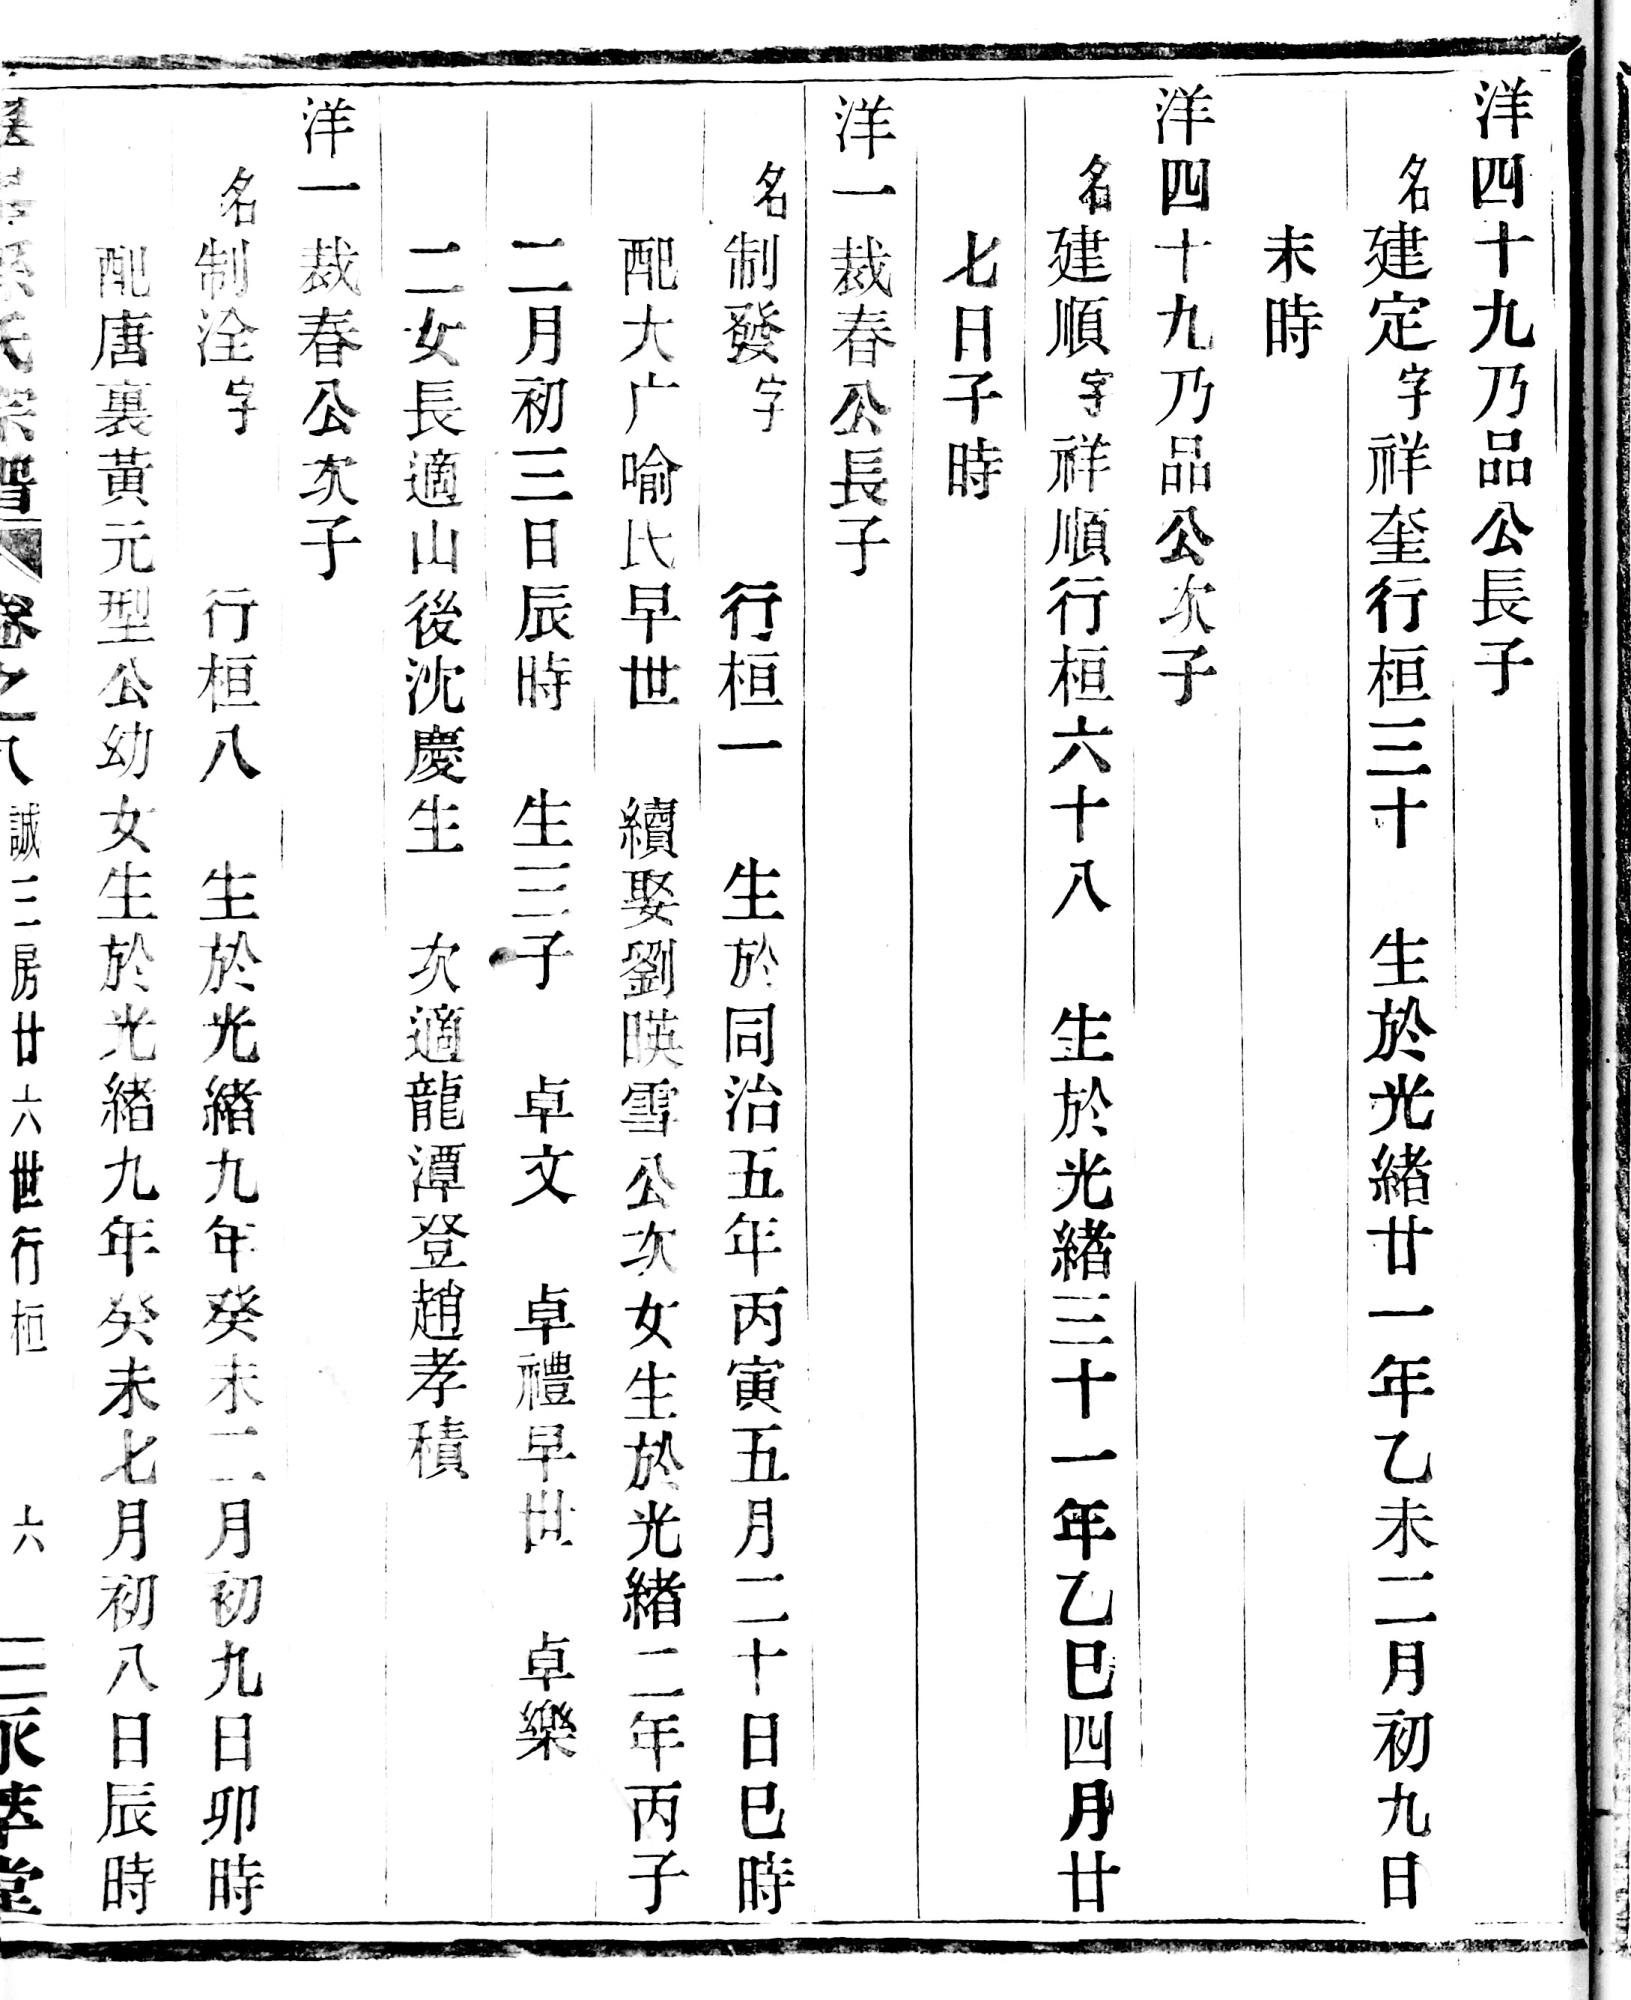 洋四十九乃品公長子
名建定字祥奎行桓三十　生於光緒廿一年乙未二月初九日
未時
洋四十九乃品公次子
名建順字祥順行桓六十八　生於光緒三十一年乙巳四月廿
七日子時
洋一裁春公長子
名制發字　行桓一　生於同治五年丙寅五月二十日巳時
配大广喻氏早世　續娶劉暎雪公次女生於光緒二年丙子
二月初三日辰時　生三子　卓文　卓禮早世　卓樂
二女長適山後沈慶生　次適龍潭登趙孝積
洋一裁春公次子
名制洤字　行桓八　生於光緒九年癸未二月初九日卯時
配唐裏黃元型公幼女生於光緒九年癸未七月初八日辰時
氏宗譜　卷之八　誠三房廿六世行桓　六　萃堂